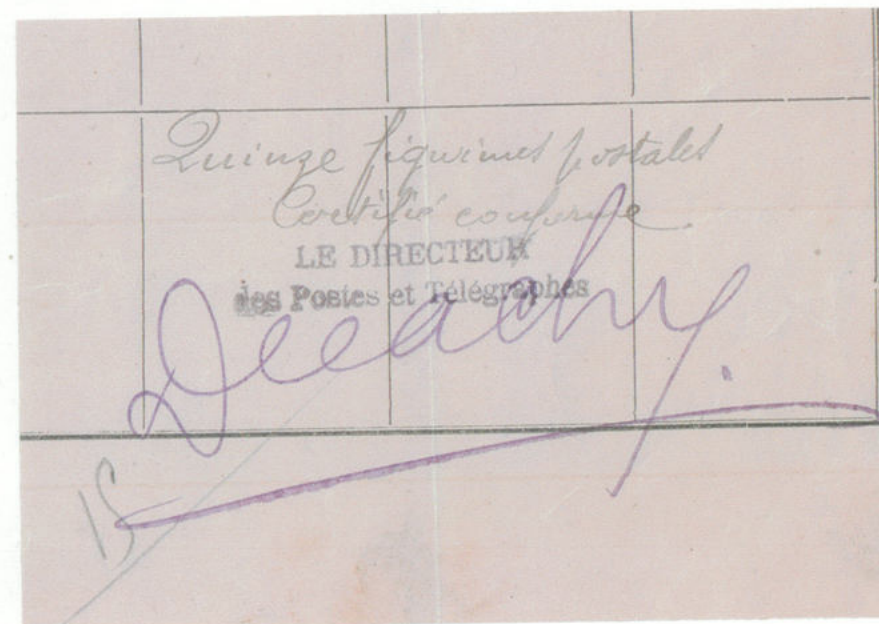 Quinze figurines postales
Certifié conforme
LE DIRECTEUR
des Postes et Télégraphes
15